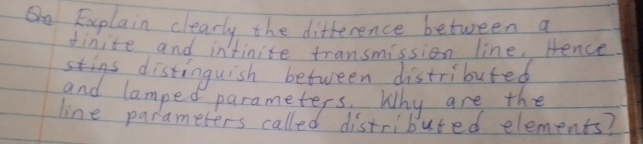 Qe Explain clearly the difference between a
finite and infinite transmission line. Hence
distinguish between distributed
and lamped parameters. Why are the
line parameters called distributed elements?